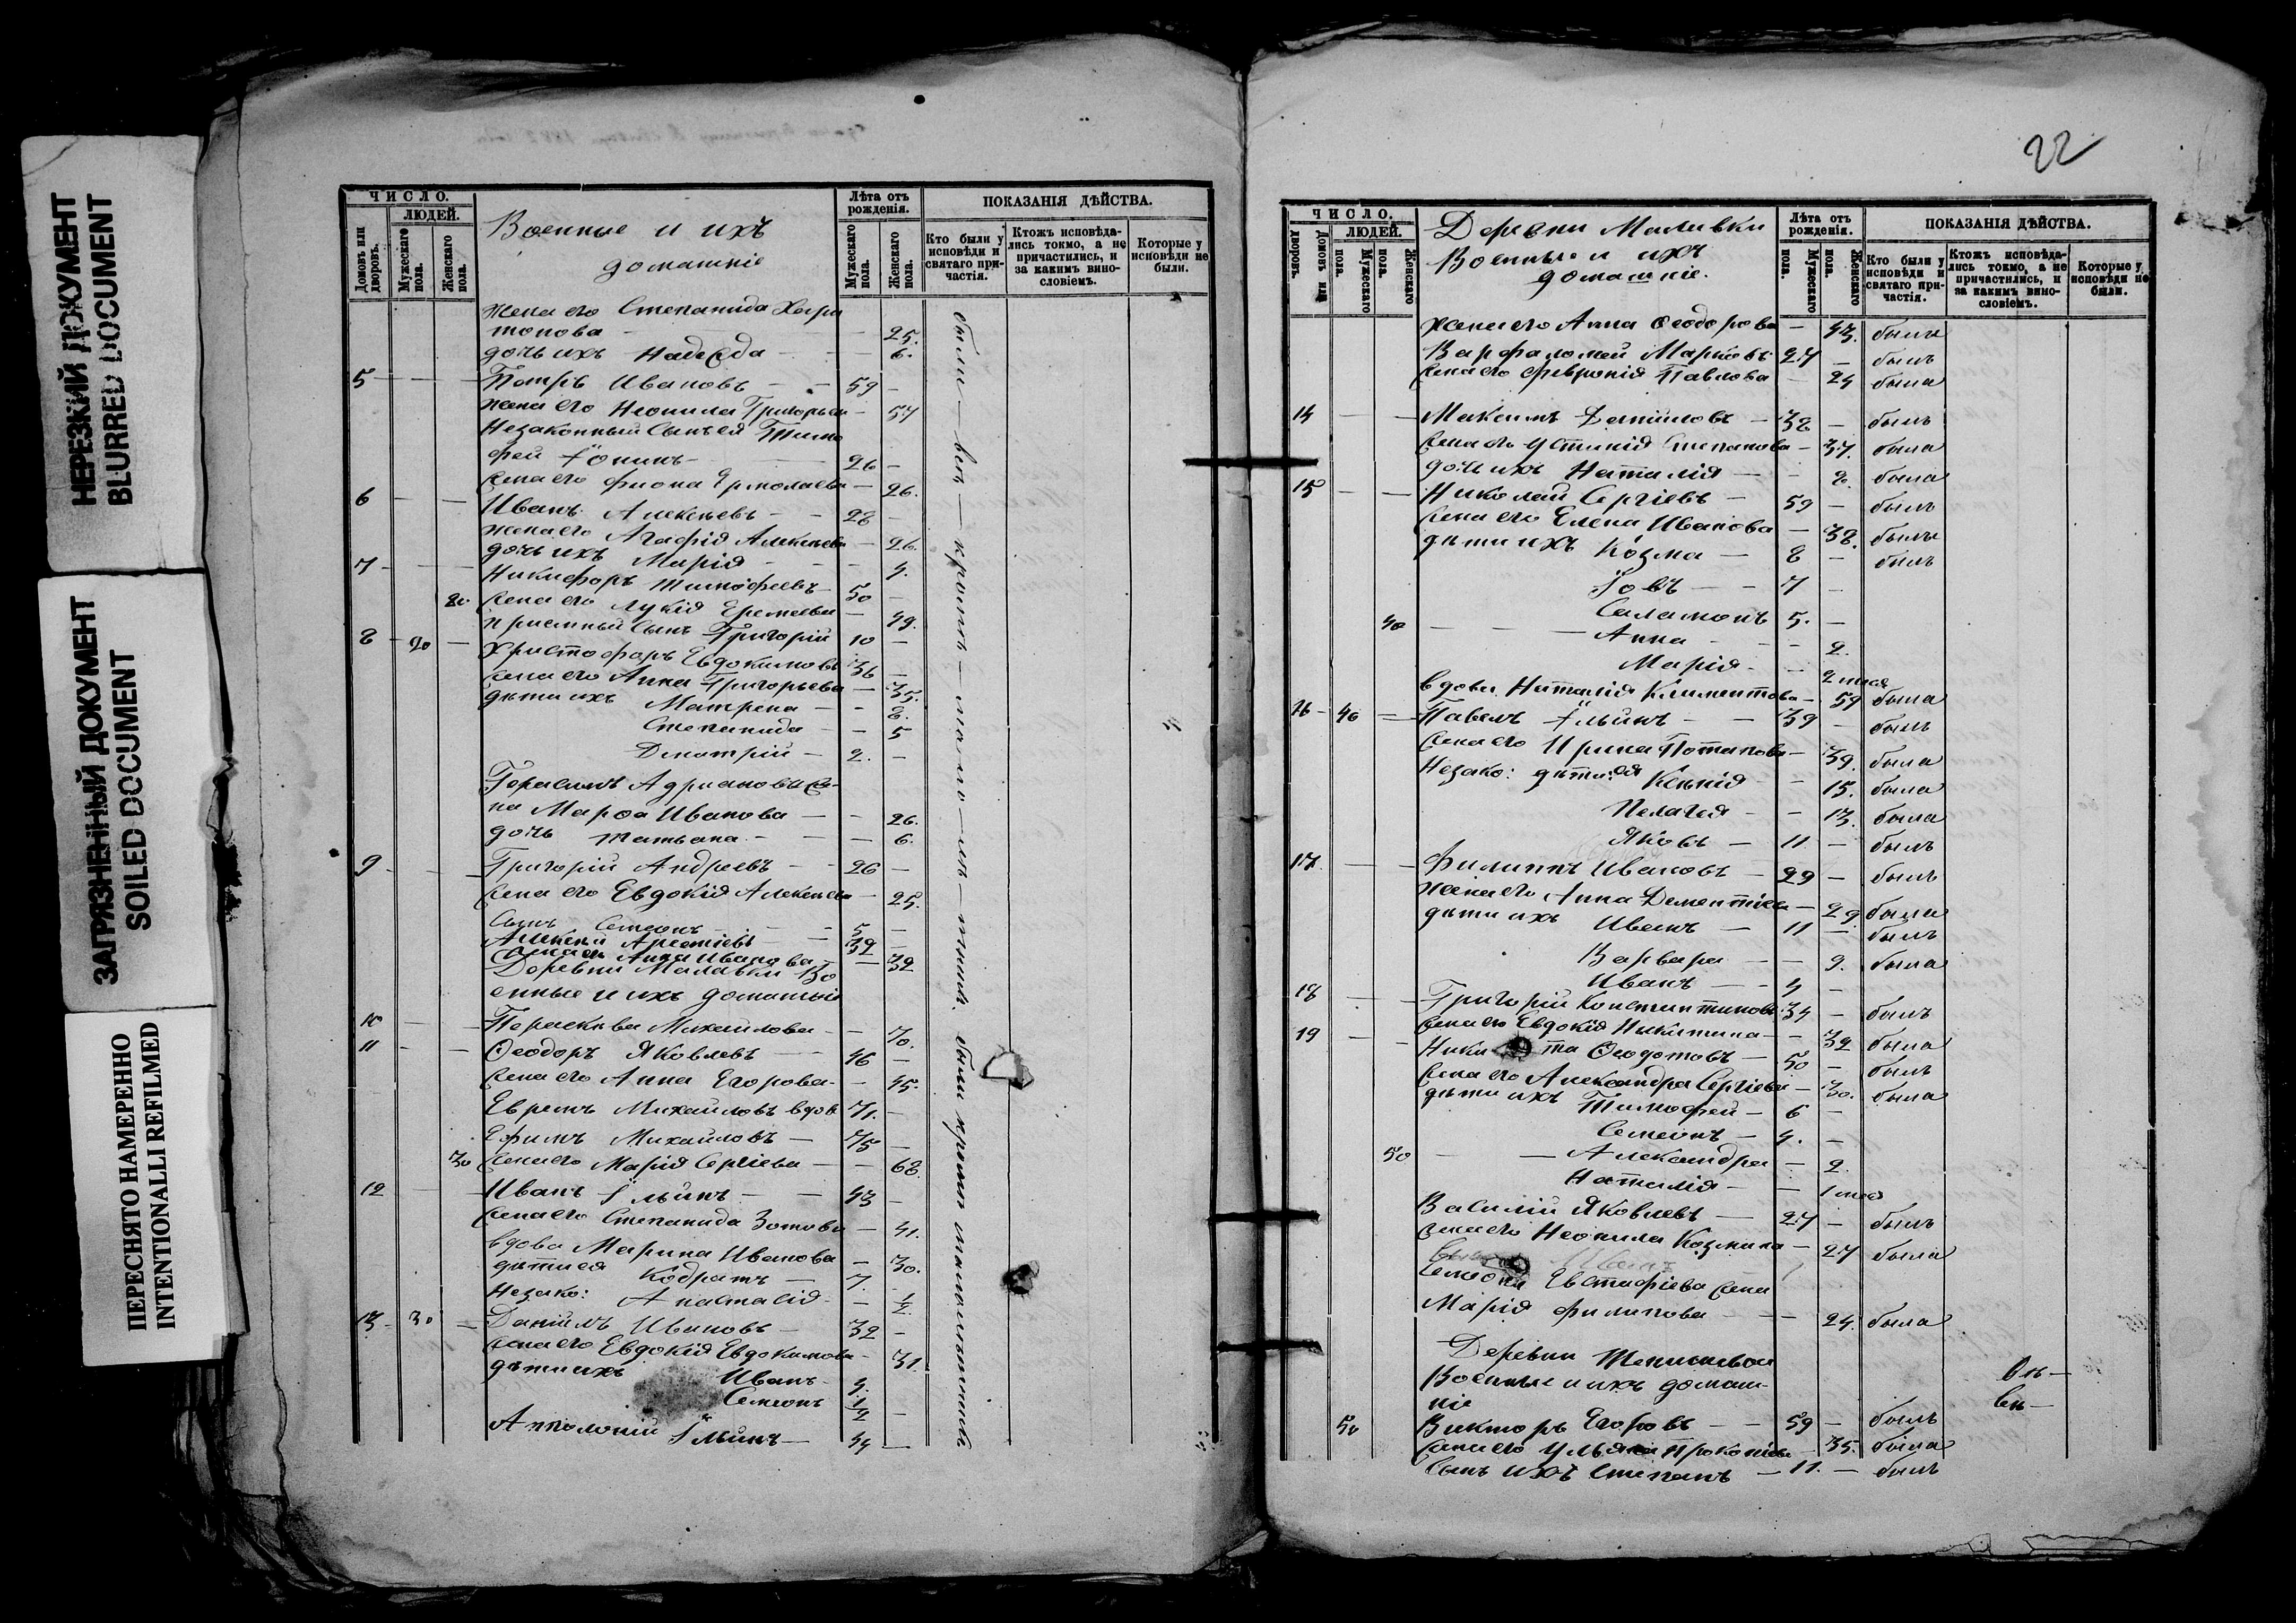 НЕРЕЗКИЙ ДОКУМЕНТ
BLURRED DOCUMENT
ЗАГРЯЗНЕННЫЙ ДОКУМЕНТ
SOILED DOCUMENT
ПЕРЕСНЯТО НАМЕРЕННО
INTENTIONALLI REFILMED
ЧИСЛО.
ЛЮДЕЙ.
Домовъ или дворовъ.
Мужескаго пола.
Женскаго пола.
Военные и ихъ
домашніе
Лѣта отъ рожденія.
Мужескаго пола.
Женскаго пола.
ПОКАЗАНІЯ ДѢЙСТВА.
Кто были у исповѣди и святаго причастія.
Ктожъ исповѣдались токмо, а не причастились, и за какимъ винословіемъ.
Которые у исповѣди не были.
жена его Степанида Хари
тонова 25.
дочь ихъ Надежда 6.
5 Петръ Ивановъ 59
жена его Неонила Григорьева 57
Незаконный сынъ ея Тимо
фей Іонинъ 26
жена его Фиона Ермолаева 26.
6 Иванъ Алексѣевъ 28
жена его Агафія Алексѣева 26.
дочь ихъ Марія 4.
7 Никифоръ Тимофѣевъ 50
20 жена его Лукія Еремеева 49.
пріемный сынъ Григорій 10
8 20 Христофоръ Евдокимовъ 36
жена его Анна Григорьева 35.
дѣти ихъ Матрена 8.
Степанида 5
Димитрій 2.
Герасимъ Адріановъ же-
на Марѳа Иванова 26.
дочь Татьяна 6.
9 Григорій Андреевъ 26
жена его Евдокія Алексѣева 25.
сынъ Семеонъ 5
Алексѣй Арсеніевъ 32
жена его Анна Иванова 32
Деревни Малавки Во
енные и ихъ домашніе
10 Параскева Михайлова 70.
11 Ѳеодоръ Яковлевъ 46
жена его Анна Егорова 45.
Евремъ Михайловъ вдов. 71.
Ефимъ Михайловъ 75
30 жена его Марія Сергіева 68.
12 Иванъ Ильинъ 43
жена его Степанида Зотова 41.
вдова Марина Иванова 30.
дѣти ея Кодратъ 7.
Незако: Анастасія ½
13 30 Даніилъ Ивановъ 32
жена его Евдокія Евдокимова 31.
дѣти ихъ Иванъ 4.
Семеонъ ½
Апполоній Ильинъ 44
были всѣ кромѣ малолѣтнихъ. были кромѣ малолѣтнихъ
22
ЧИСЛО.
ЛЮДЕЙ.
Домовъ или дворовъ.
Мужескаго пола.
Женскаго пола.
Деревни Малявки
Военные и ихъ
домашніе.
Лѣта отъ рожденія.
Мужескаго пола.
Женскаго пола.
ПОКАЗАНІЯ ДѢЙСТВА.
Кто были у исповѣди и святаго причастія.
Ктожъ исповѣдались токмо, а не причастились, и за какимъ винословіемъ.
Которые у исповѣди не были.
жена его Анна Ѳеодорова 43. была
Варфаломей Марковъ 27 былъ
жена его Февронія Павлова 24 была
14 Максимъ Даниловъ 38 былъ
жена его Устинія Степанова 37. была
дочь ихъ Наталія 8. была
15 Николай Сергіевъ 59 былъ
жена его Елена Иванова 38. была
дѣти ихъ Козма 8 былъ
Іовъ 7
Саламонъ 5.
40 Анна 2.
Марія 2 мѣся
вдова Наталія Климентова 59 была
16 40 Павелъ Ильинъ 39 былъ
жена его Ирина Потапова 39. была
Незако: дѣти ея Ксенія 15. была
Пелагея 13. была
Яковъ 11 былъ
17 Филиппъ Ивановъ 29 былъ
жена его Анна Дементіева 29 была
дѣти ихъ Иванъ 11 былъ
Варвара 9. была
Иванъ 4
18 Григорій Константиновъ 34 былъ
жена его Евдокія Никитина 32 была
19 Никита Ѳеодотовъ 50 былъ
жена его Александра Сергіева 30. была
дѣти ихъ Тимофей 6
Семеонъ 4.
50 Александра 2.
Наталія 1 мѣся
Василій Яковлевъ 27 былъ
жена его Неонила Козмина 27 была
Семеона Евстафіева жена
Марія Филипова 24. была
Деревни
Военные и ихъ домаш-
ніе
50 Викторъ Егоровъ 59 былъ
жена его Ульяна Прокопіева 35. была
сынъ ихъ Степанъ 11. былъ